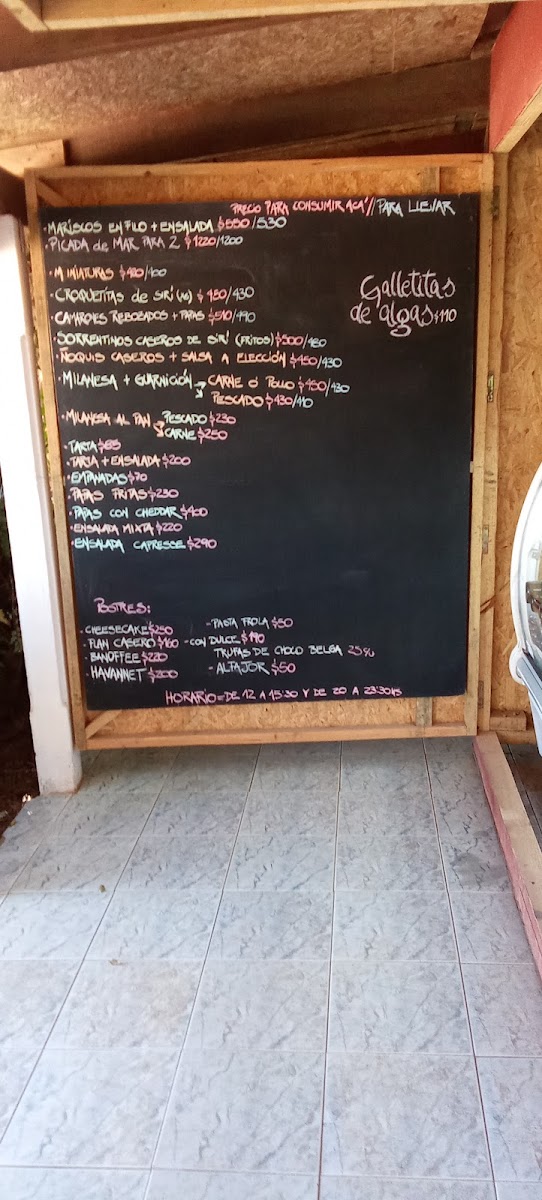 PRECIO PARA CONSUMIR ACÁ // PARA LLEVAR
·MARISCOS EN FILO + ENSALADA $550/530
·PICADA de MAR PARA 2 $1220/1200
·MINIATURAS $420/400
·CROQUETITAS de SIRÍ $450/430
·CAMARONES REBOZADOS + PAPAS $510/490
·SORRENTINOS CASEROS DE SIRÍ (FRITOS) $500/480
·ÑOQUIS CASEROS + SALSA A ELECCIÓN $450/430
·MILANESA + GUARNICIÓN CARNE Ó POLLO $450/430
PESCADO $430/410
·MILANESA AL PAN PESCADO $230
CARNE $250
·TARTA $85
·TARTA + ENSALADA $200
·EMPANADAS $70
·PAPAS FRITAS $230
·PAPAS CON CHEDDAR $400
·ENSALADA MIXTA $220
·ENSALADA CAPRESSE $290
Galletitas
de algas $110
POSTRES:
·CHEESECAKE $250
·FLAN CASERO $160 -CON DULCE $190
·BANOFFEE $220
·HAVANNET $200
-PASTA FROLA $50
TRUFAS DE CHOCO BELGA
-ALFAJOR $50
HORARIO=DE 12 A 15:30 Y DE 20 A 23:30HS